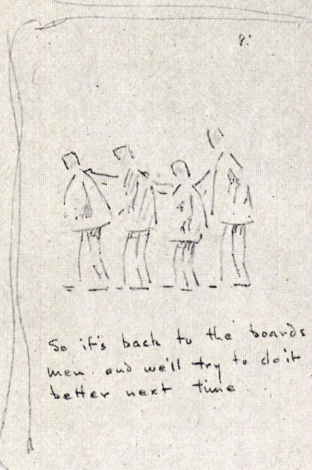 8.
So it's back to the boards
men and we'll try to do it
better next time